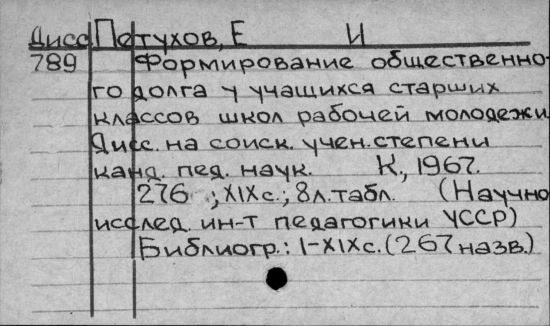 Дисс Петухов, Е И
789 Формирование общественно-
го долга у учащихся старших
классов школ рабочей молодежи
Дисс. на соиск. учен. степени
канд. пед. наук. К., 1967.
276 ; XIXс.; 8л.табл. (Научно
исслед. ин-т педагогики УССР)
Библиогр.: I-XIXс. (267 назв.)